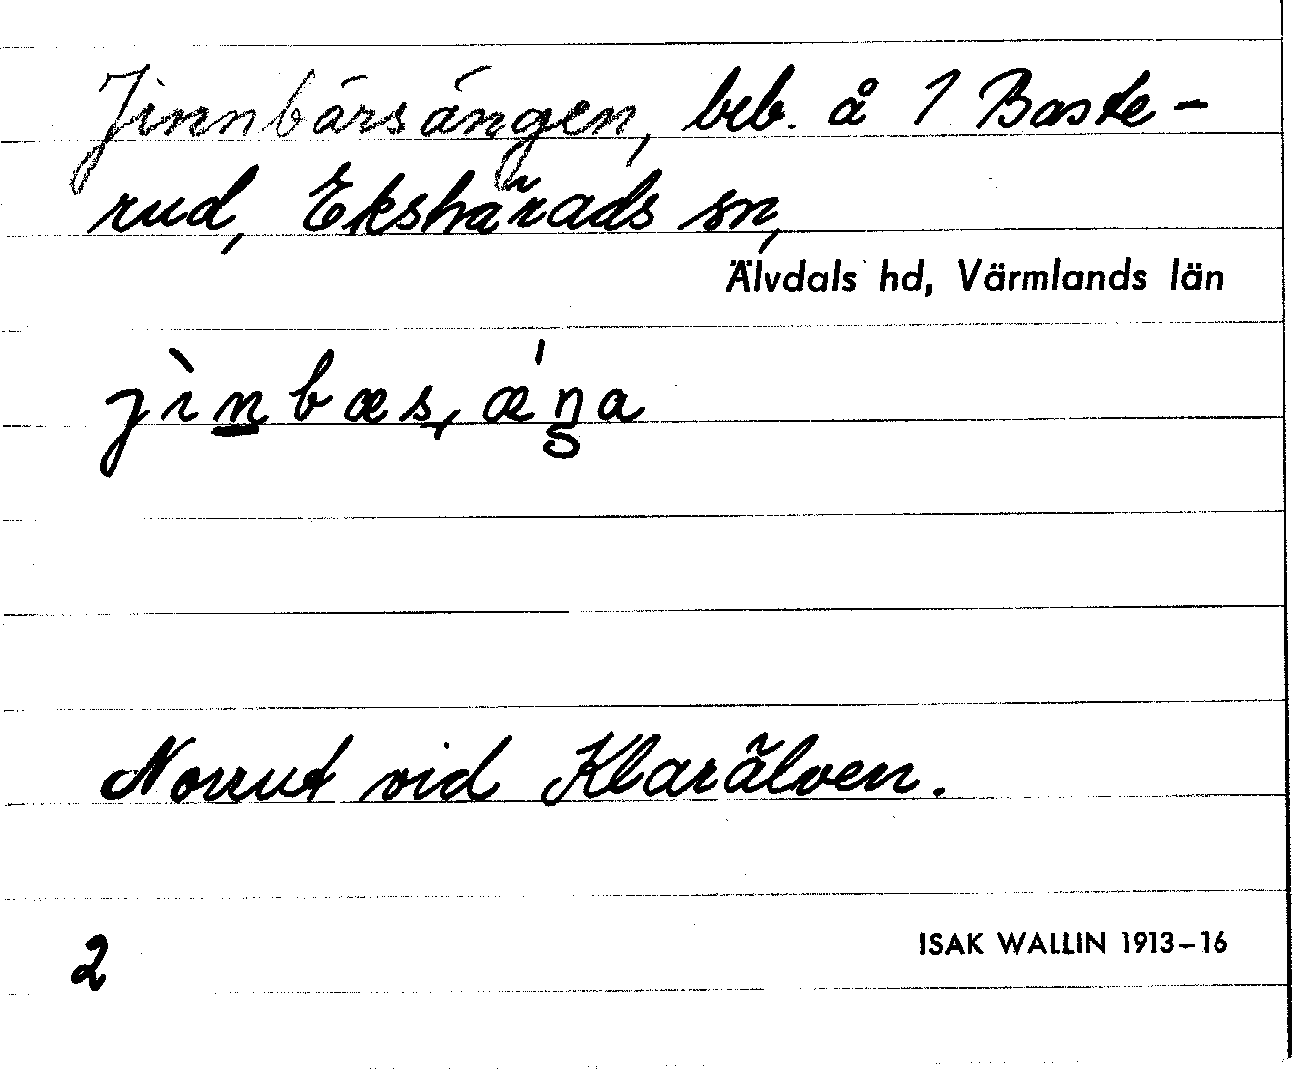 Jinnbärsängen, beb. å 1 Baste-
rud, Ekshärads sn,
Älvdals hd, Värmlands län
jìn̲bæs,æ´ŋa
Norrut vid Klarälven.
2
ISAK WALLIN 1913–16